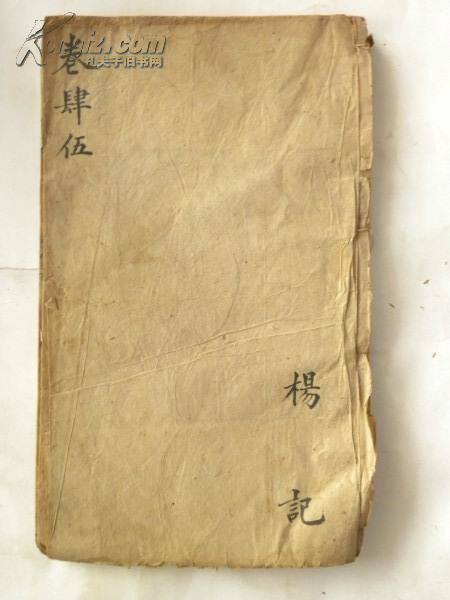 卷肆伍
楊記
Kongfz.com
孔夫子旧书网